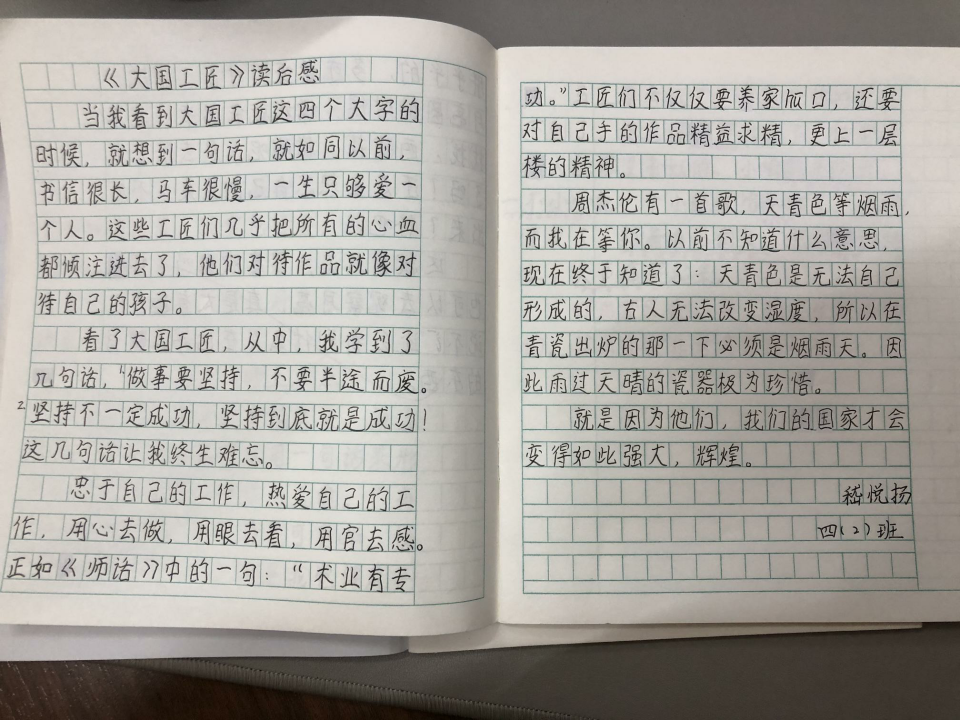 《大国工匠》读后感
当我看到大国工匠这四个大字的
时候，就想到一句话，就如同以前，
书信很长，马车很慢，一生只够爱一
个人。这些工匠们几乎把所有的心血
都倾注进去了，他们对待作品就像对
待自己的孩子。
看了大国工匠，从中，我学到了
几句话，“做事要坚持，不要半途而废。
2坚持不一定成功，坚持到底就是成功！
这几句话让我终生难忘。
忠于自己的工作，热爱自己的工
作，用心去做，用眼去看，用官去感。
正如《师话》中的一句：“术业有专
功。”工匠们不仅仅要养家口，还要
对自己手的作品精益求精，更上一层
楼的精神。
周杰伦有一首歌，天青色等烟雨，
而我在等你。以前不知道什么意思，
现在终于知道了：天青色是无法自己
形成的，古人无法改变湿度，所以在
青瓷出炉的那一下必须是烟雨天。因
此雨过天晴的瓷器极为珍惜。
就是因为他们，我们的国家才会
变得如此强大，辉煌。
嵇悦扬
四（2）班